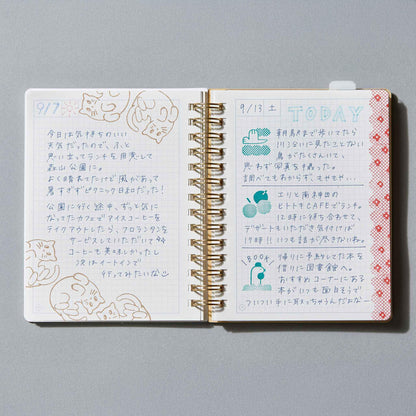 9/7
今日は気持ちのいい
天気だったので、ふと
思い立ってランチを用意して
森山公園に。
よく晴れてたけど風があって
暑すぎずピクニック日和だった!
公園に行く途中、ずっと気に
なってたカフェでアイスコーヒーを
テイクアウトしたら、フロランタンを
サービスしていただいて
コーヒーも美味しかったし
次はイートインで
行ってみたいな
9/13 土
TODAY
朝、駅まで歩いてたら
川沿いに見たことない
鳥がたくさんいて、
思わず写真を撮った。
調べても
エリと南神田の
ヒトトキCAFEでランチ。
12時に待ち合わせて、
デザートもいただき気付けば
17時!!いつも話が尽きないね。
BOOK!
帰りに予約してた本を
借りに図書館へ。
おすすめコーナーにある
本がいつも面白そうで
ついつい手に取っちゃうんだよなー